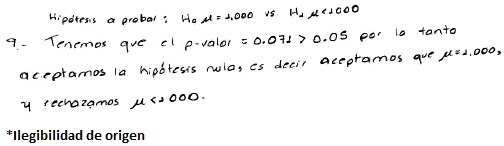 Hipótesis a probar: H₀ μ = 1,000 vs. H₁ μ < 1000
9.- Tenemos que el p-valor = 0.071 > 0.05 por lo tanto
aceptamos la hipótesis nula, es decir aceptamos que μ = 1,000,
y rechazamos μ < 1000.
*Ilegibilidad de origen